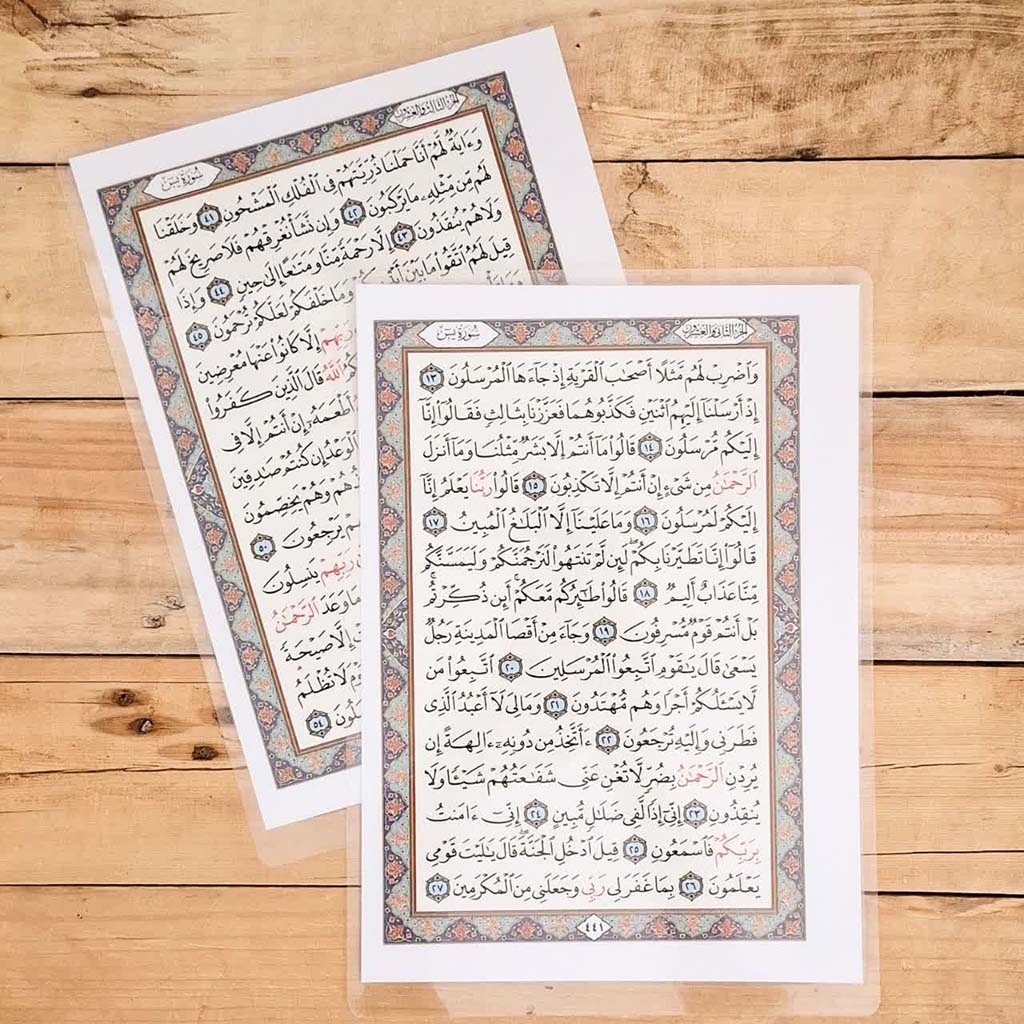 الجزء الثالث والعشرون
سُورَةُ يسٓ
وَءَايَةٌ لَّهُمْ أَنَّا حَمَلْنَا ذُرِّيَّتَهُمْ فِى ٱلْفُلْكِ ٱلْمَشْحُونِ ٤١ وَخَلَقْنَا
لَهُم مِّن مِّثْلِهِۦ مَا يَرْكَبُونَ ٤٢ وَإِن نَّشَأْ نُغْرِقْهُمْ فَلَا صَرِيخَ لَهُمْ
وَلَا هُمْ يُنقَذُونَ ٤٣ إِلَّا رَحْمَةً مِّنَّا وَمَتَٰعًا إِلَىٰ حِينٍ ٤٤ وَإِذَا
قِيلَ لَهُمُ ٱتَّقُوا۟ مَا بَيْنَ وَمَا خَلْفَكُمْ لَعَلَّكُمْ تُرْحَمُونَ ٤٥
رَبِّهِمْ إِلَّا كَانُوا۟ عَنْهَا مُعْرِضِينَ
ٱللَّهُ قَالَ ٱلَّذِينَ كَفَرُوا۟
أَطْعَمَهُۥٓ إِنْ أَنتُمْ إِلَّا فِى
ٱلْوَعْدُ إِن كُنتُمْ صَٰدِقِينَ
وَهُمْ يَخِصِّمُونَ
يَرْجِعُونَ ٥٠
رَبِّهِمْ يَنسِلُونَ
مَا وَعَدَ ٱلرَّحْمَٰنُ
إِلَّا صَيْحَةً
لَا تُظْلَمُ
٥٤
الجزء الثاني والعشرون
سُورَةُ يسٓ
وَٱضْرِبْ لَهُم مَّثَلًا أَصْحَٰبَ ٱلْقَرْيَةِ إِذْ جَآءَهَا ٱلْمُرْسَلُونَ ١٣
إِذْ أَرْسَلْنَآ إِلَيْهِمُ ٱثْنَيْنِ فَكَذَّبُوهُمَا فَعَزَّزْنَا بِثَالِثٍ فَقَالُوٓا۟ إِنَّآ
إِلَيْكُم مُّرْسَلُونَ ١٤ قَالُوا۟ مَآ أَنتُمْ إِلَّا بَشَرٌ مِّثْلُنَا وَمَآ أَنزَلَ
ٱلرَّحْمَٰنُ مِن شَىْءٍ إِنْ أَنتُمْ إِلَّا تَكْذِبُونَ ١٥ قَالُوا۟ رَبُّنَا يَعْلَمُ إِنَّآ
إِلَيْكُمْ لَمُرْسَلُونَ ١٦ وَمَا عَلَيْنَآ إِلَّا ٱلْبَلَٰغُ ٱلْمُبِينُ ١٧
قَالُوٓا۟ إِنَّا تَطَيَّرْنَا بِكُمْ ۖ لَئِن لَّمْ تَنتَهُوا۟ لَنَرْجُمَنَّكُمْ وَلَيَمَسَّنَّكُم
مِّنَّا عَذَابٌ أَلِيمٌ ١٨ قَالُوا۟ طَٰٓئِرُكُم مَّعَكُمْ ۚ أَئِن ذُكِّرْتُم ۚ
بَلْ أَنتُمْ قَوْمٌ مُّسْرِفُونَ ١٩ وَجَآءَ مِنْ أَقْصَا ٱلْمَدِينَةِ رَجُلٌ
يَسْعَىٰ قَالَ يَٰقَوْمِ ٱتَّبِعُوا۟ ٱلْمُرْسَلِينَ ٢٠ ٱتَّبِعُوا۟ مَن
لَّا يَسْـَٔلُكُمْ أَجْرًا وَهُم مُّهْتَدُونَ ٢١ وَمَا لِىَ لَآ أَعْبُدُ ٱلَّذِى
فَطَرَنِى وَإِلَيْهِ تُرْجَعُونَ ٢٢ ءَأَتَّخِذُ مِن دُونِهِۦٓ ءَالِهَةً إِن
يُرِدْنِ ٱلرَّحْمَٰنُ بِضُرٍّ لَّا تُغْنِ عَنِّى شَفَٰعَتُهُمْ شَيْـًٔا وَلَا
يُنقِذُونِ ٢٣ إِنِّىٓ إِذًا لَّفِى ضَلَٰلٍ مُّبِينٍ ٢٤ إِنِّىٓ ءَامَنتُ
بِرَبِّكُمْ فَٱسْمَعُونِ ٢٥ قِيلَ ٱدْخُلِ ٱلْجَنَّةَ ۖ قَالَ يَٰلَيْتَ قَوْمِى
يَعْلَمُونَ ٢٦ بِمَا غَفَرَ لِى رَبِّى وَجَعَلَنِى مِنَ ٱلْمُكْرَمِينَ ٢٧
٤٤١